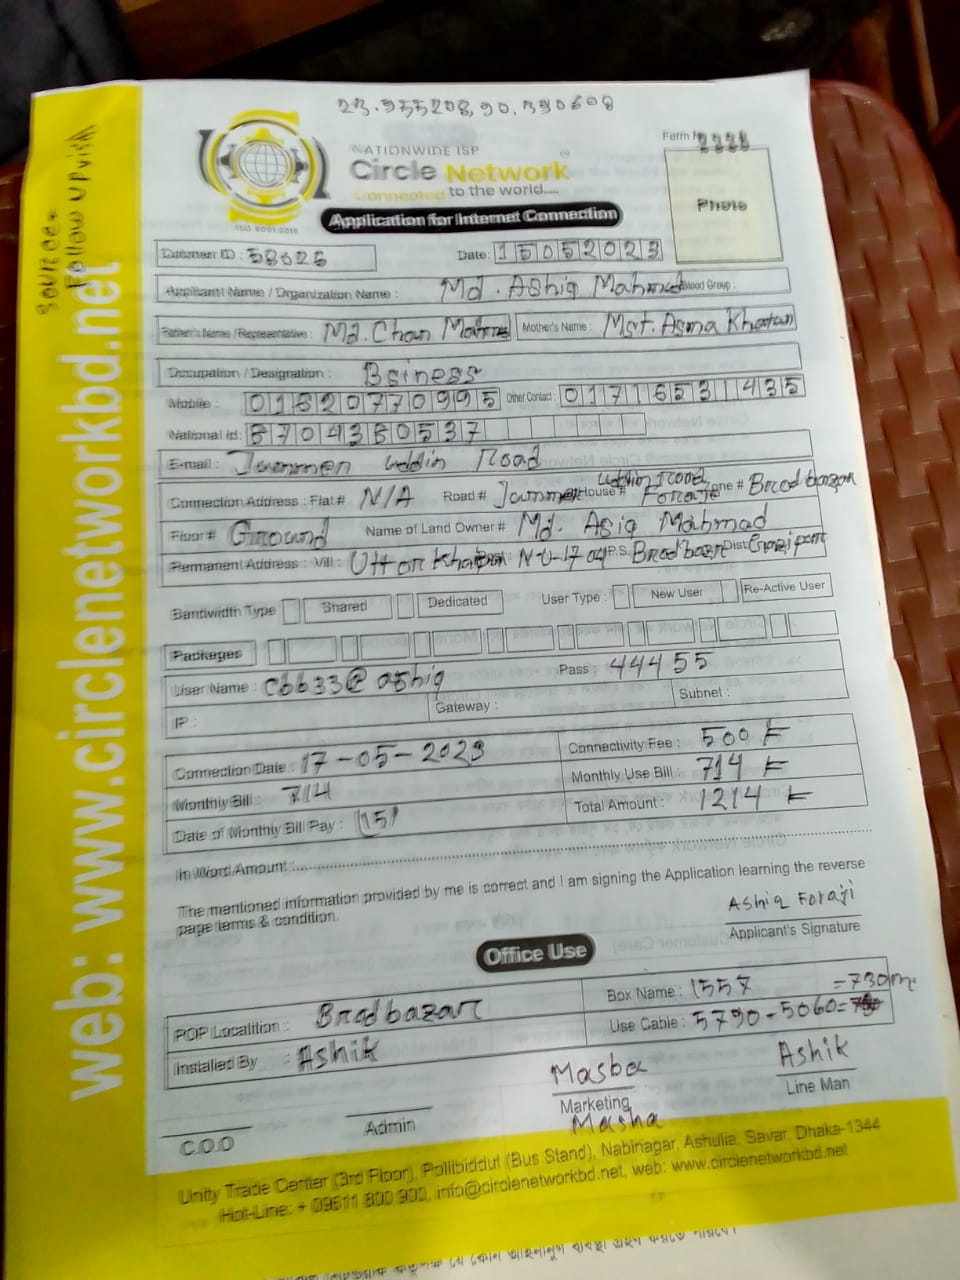 23.955208,90.390608
NATIONWIDE ISP
Circle Network
Connected to the world.....
ISO 9001:2015
Form
Photo
Application for Internet Connection
SOURCE:
Follow up visit
web: www.circlenetworkbd.net
Customer ID : 58625
Date: 15052023
Applicant Name / Organization Name : Md. Ashiq Mahmud Blood Group :
Father's Name /Representative: Md. Chan Mahmud Mother's Name : Mst. Asma Khatun
Occupation / Designation : Bsiness
Mobile : 01620770995 Other Contact : 01716531435
National id: 8704380537
E-mail : Jammen uddin Road
Connection Address : Flat# N/A Road # Jammen uddin Road House # Foraji Zone # Bredbazar
Floor# Ground Name of Land Owner # Md. Asiq Mahmad
Permanent Address : Vill : Uttor Khan Post: N-U-1704 P.S. Bredbazar Dist: Gazipur
Bandwidth Type Shared Dedicated User Type : New User Re-Active User
Packages
User Name : cbb33@ashiq Pass : 444 55
IP : Gateway : Subnet :
Connection Date : 17-05-2023 Connectivity Fee : 500
Monthly Bill : 714 Monthly Use Bill : 714
Date of Monthly Bill Pay : 15 Total Amount : 1214
In Word Amount :
The mentioned information provided by me is correct and I am signing the Application learning the reverse
page terms & condition.
Ashiq Foraji
Applicant's Signature
Office Use
POP Locatition : Bredbazar Box Name : 1557 =730m
Installed By : Ashik Use Cable : 5790-5060=730
Masba Ashik
C.O.O Admin Marketing Line Man
Masha
Unity Trade Center (3rd Floor), Pollibiddut (Bus Stand), Nabinagar, Ashulia, Savar, Dhaka-1344
Hot-Line: + 09611 800 900, info@circlenetworkbd.net, web: www.circlenetworkbd.net